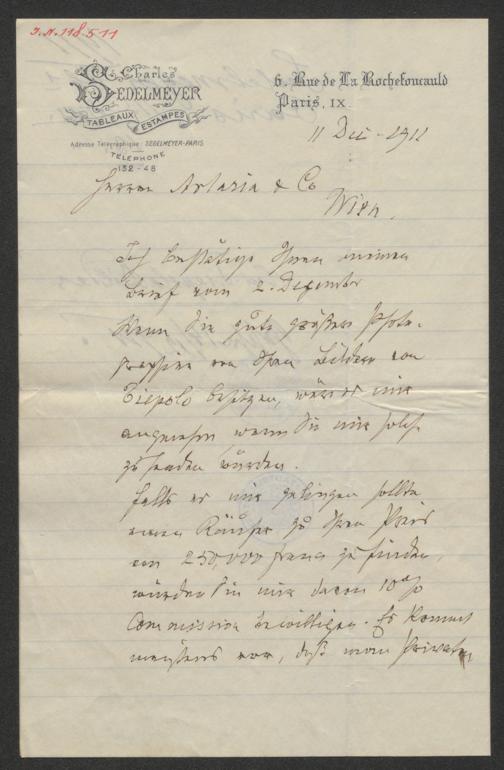 J. N. 118511
Charles
SEDELMEYER
TABLEAUX
ESTAMPES
Adresse Télégraphique: SEDELMEYER-PARIS
TELEPHONE
152-48
6. Rue de La Rochefoucauld
Paris, IX.
11 Dec - 1912
Herren Artaria & Co
Wien.
Ich bestätige Ihnen meinen
Brief vom 2. Dezember
Wenn Sie gute größere Photo-
graphien von Ihren Bildern von
Tiepolo besitzen, wäre es mir
angenehm wenn Sie mir solche
zu senden würden.
Falls es mir gelingen sollte
einen Käufer zu Ihrem Preis
von 250,000 francs zu finden,
würden Sie mir davon 10%
Commission bewilligen. Es kommt
meistens vor, daß man Privaten